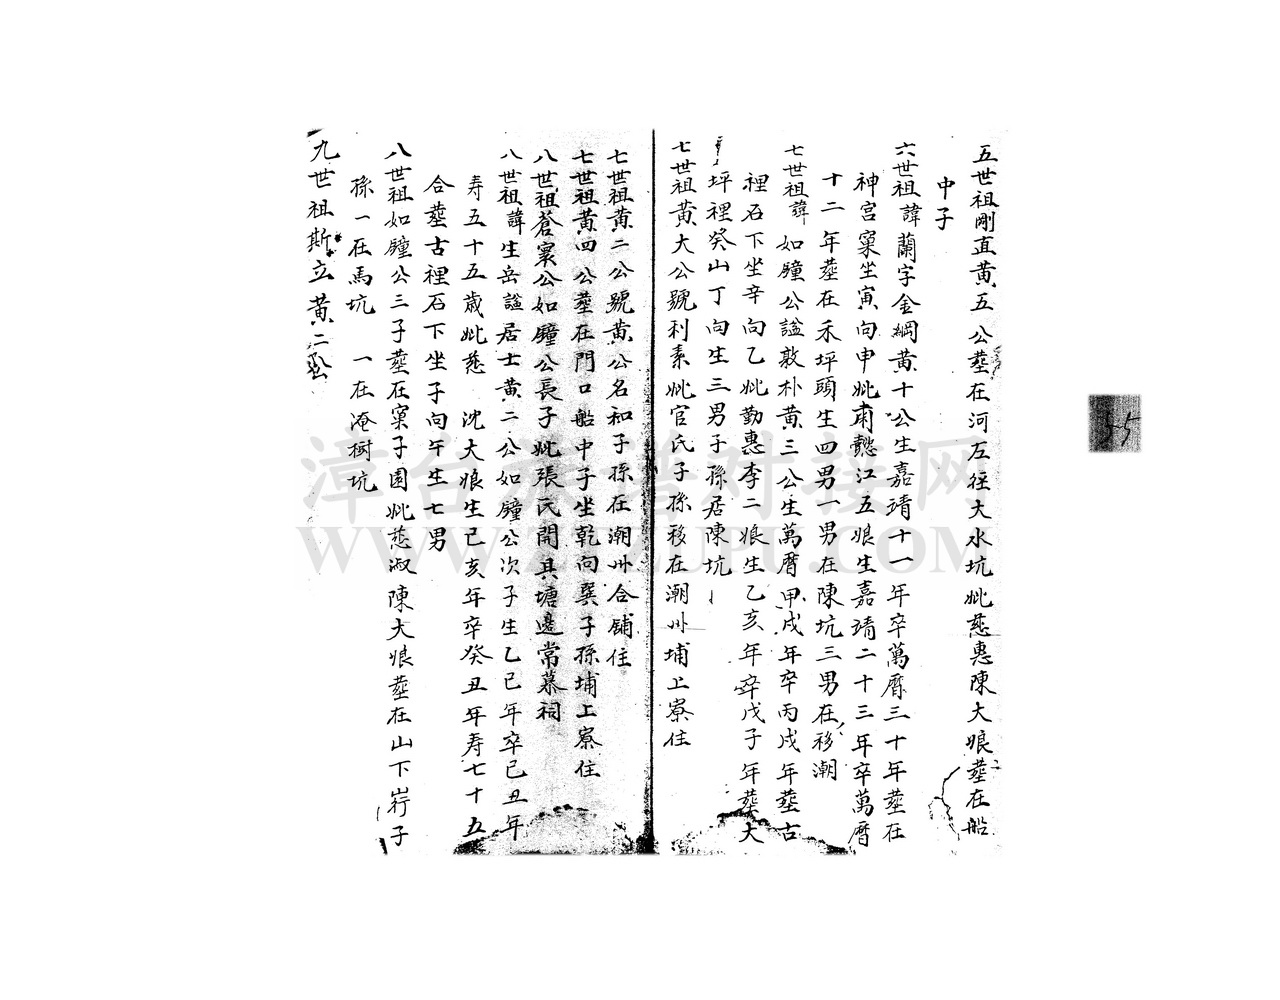 五世祖剛直黄五公塟在河左徃大水坑妣慈惠陳大娘塟在船
中子
六世祖諱蘭字金綱黄十公生嘉靖十一年卒萬曆三十年塟在
神宫窠坐寅向申妣肅懿江五娘生嘉靖二十三年卒萬曆
十二年塟在禾坪頭生四男一男在陳坑三男在移潮
七世祖諱如朣公謚敦朴黄三公生萬曆甲戌年卒丙戌年塟古
裡石下坐辛向乙妣勤惠李二娘生乙亥年卒戊子年塟大
坪裡癸山丁向生三男子孫居陳坑
七世祖黄大公號利素妣官氏子孫移在潮州埔上寮住
七世祖黄二公號黄公名和子孫在潮州合舖住
七世祖黄四公塟在門口船中子坐乾向巽子孫埔上寮住
八世祖蒼寰公如朣公長子妣張氏開其塘邊常慕祠
八世祖諱生岳謚居士黄二公如朣公次子生乙巳年卒己丑年
寿五十五歳妣慈 沈大娘生己亥年卒癸丑年寿七十五
合塟古裡石下坐子向午生七男
八世祖如朣公三子塟在窠子園妣慈淑陳大娘塟在山下崗子
孫一在馬坑 一在淹樹坑
九世祖斯立黄二公
55
漳台族谱对接网
WWW.ZTZUPU.COM